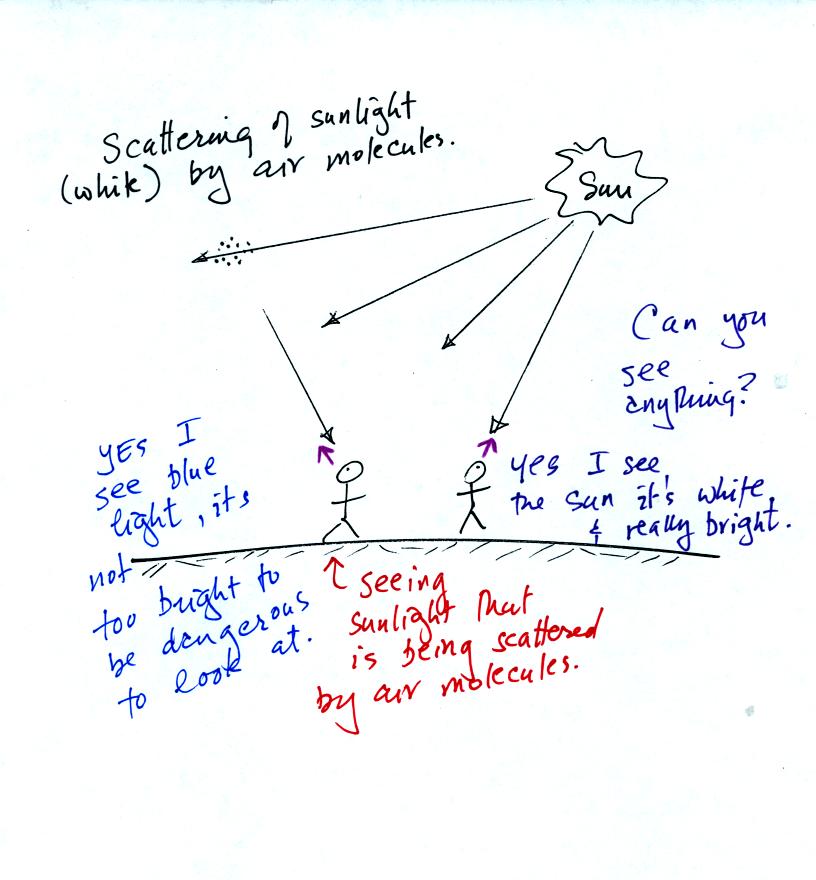 Scattering of sunlight
(white) by air molecules.
Sun
Can you
see
anything?
YES I
see blue
light, its
not
too bright to
be dangerous
to look at.
yes I see
the sun it's white
& really bright.
↑ seeing
sunlight that
is being scattered
by air molecules.